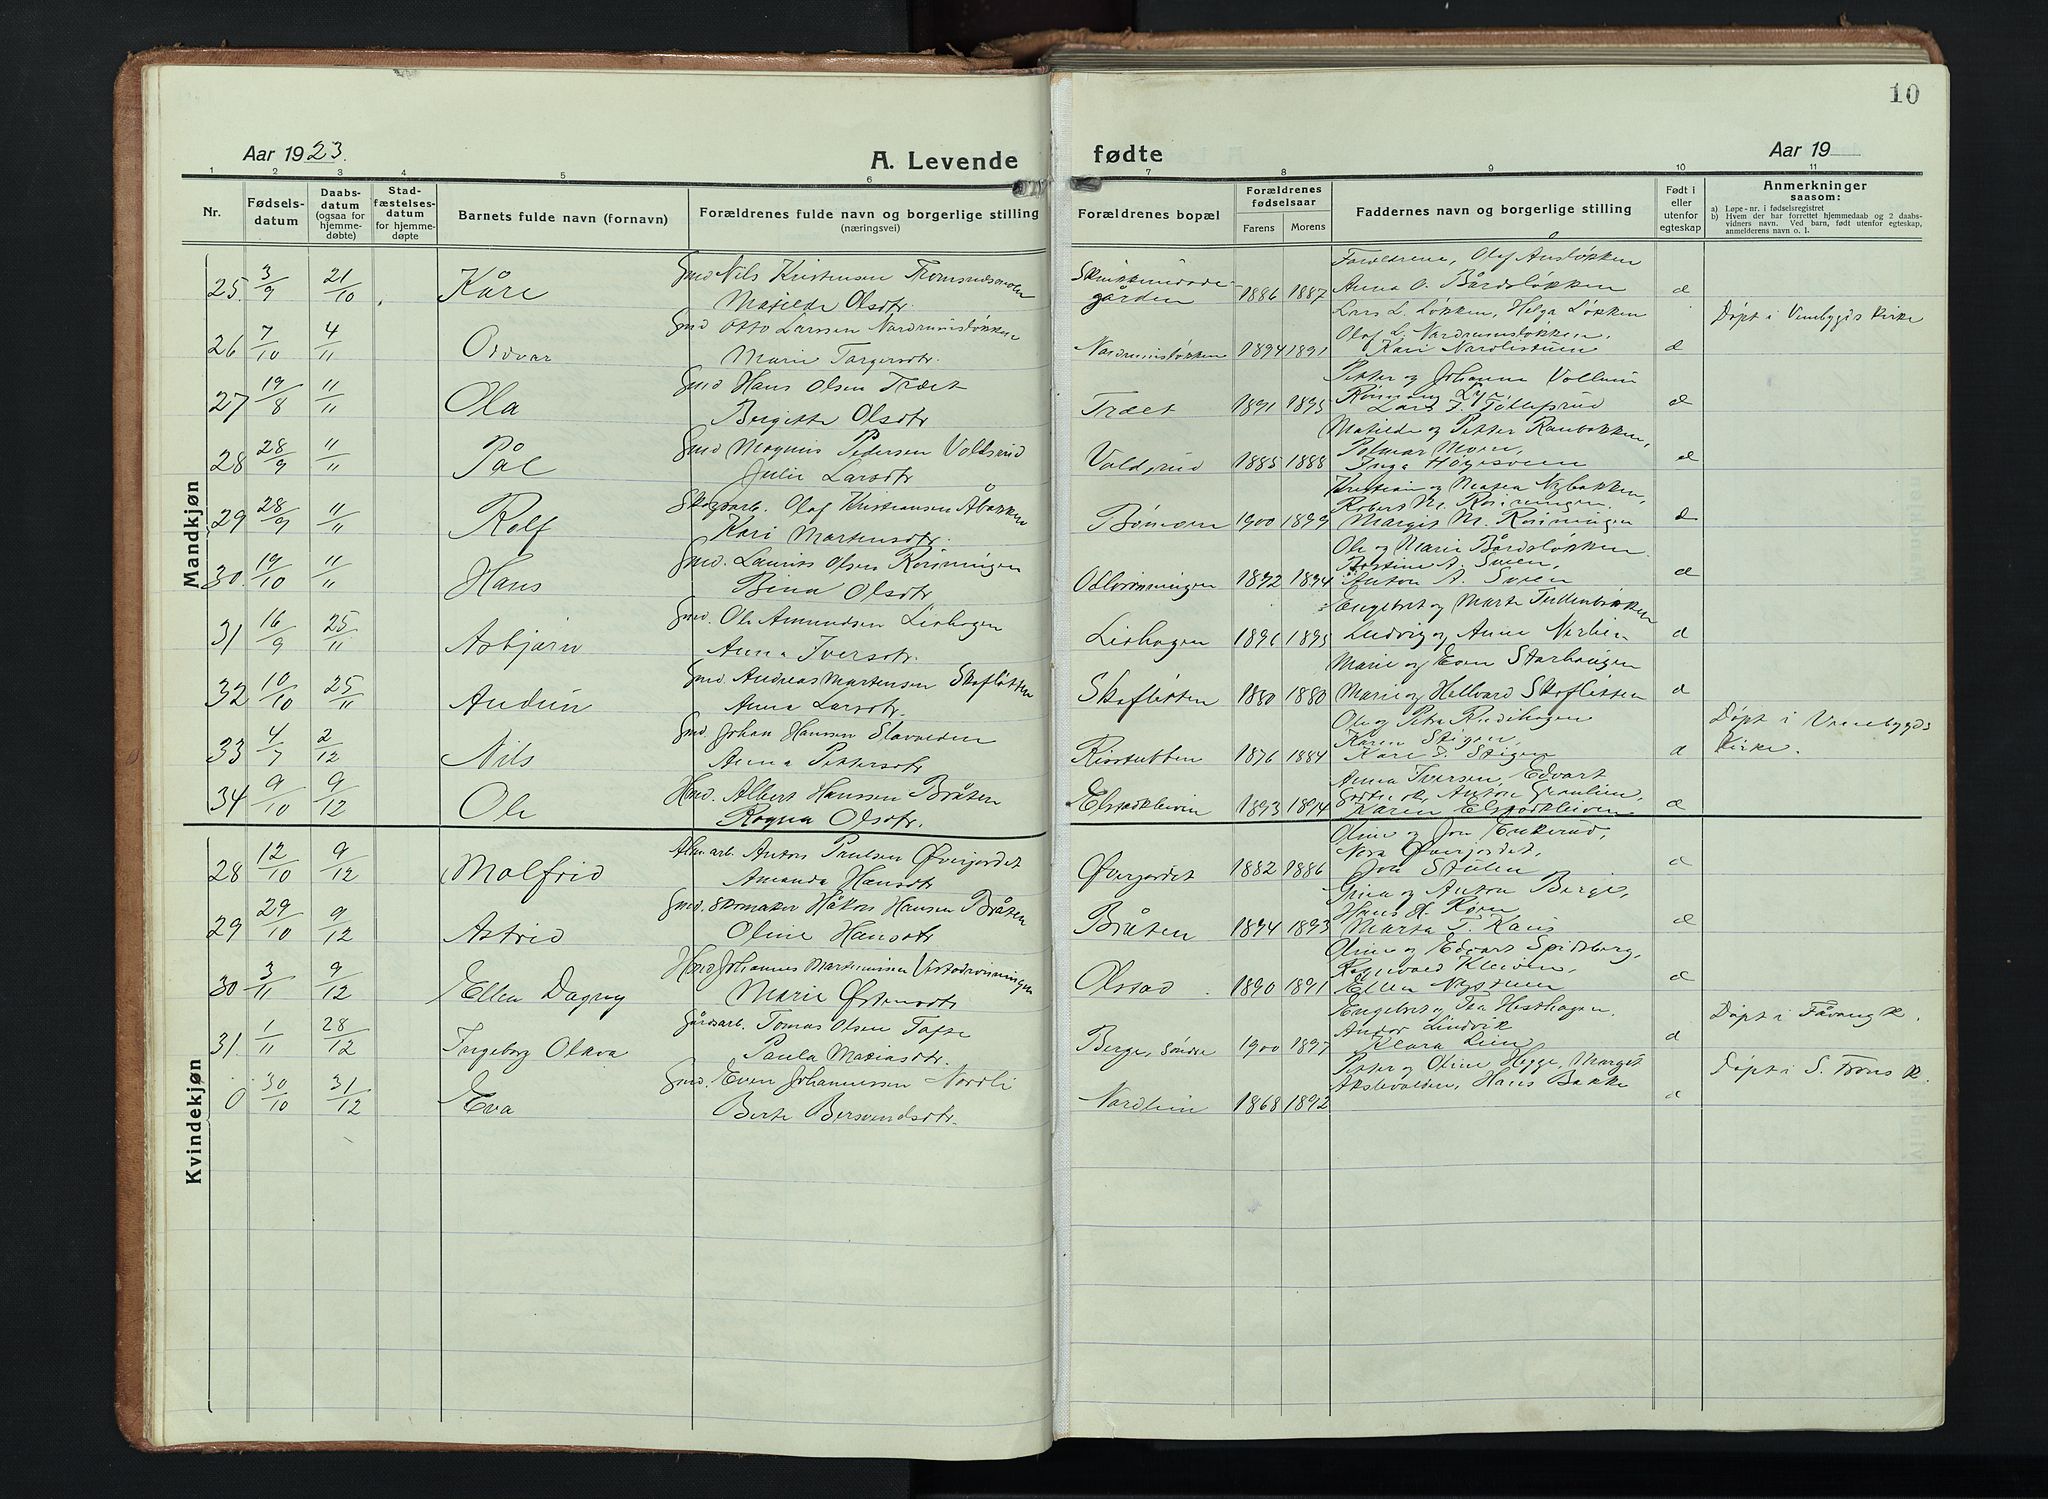 10
Aar 1923.
A. Levende
fødte
Aar 19
1 2 3 4 5 6 7 8 9 10 11
Nr.
Fødsels-
datum
Daabs-
datum
(ogsaa for
hjemme-
døbte)
Stad-
fæstelses-
datum
for hjemme-
døpte
Barnets fulde navn (fornavn)
Forældrenes fulde navn og borgerlige stilling
(næringsvei)
Forældrenes bopæl
Forældrenes
fødselsaar
Farens
Morens
Faddernes navn og borgerlige stilling
Født i
eller
utenfor
egteskap
Anmerkninger
saasom:
a) Løpe-nr. i fødselsregistret
b) Hvem der har forrettet hjemmedaab og 2 daabs-
vidners navn. Ved barn, født utenfor egteskap,
anmelderens navn o. l.
Mandkjøn
25. 3/9 21/10 Kåre Gmd Nils Kristensen
Matilde Olsdtr.
gården 1886 1887 Forældrene, Olaf Ansløkken
Anna O. Bårdsløkken d
26 7/10 4/11 Oddvar Gmd Otto Larssen Nordrumsløkken
Marie Torgersdtr.
Nordrumsløkken 1894 1891 Lars L. Løkken, Helga Løkken
Olaf L. Nordrumsløkken,
Kari Nordlistuen d Døpt i Venebygds kirke
27 19/8 11/11 Ola Gmd Hans Olsen Træet
Birgitte Olsdtr
Træet 1891 1895 Petter og Johanne Vollum
Lars F. d
28 28/9 11/11 Pål Gmd Magnus Pedersen Voldsrud
Julie Larsdtr
Voldsrud 1885 1888 Matilde og Petter Raubakken,
Polmar Moen,
Inga Høgesveen d
29 28/9 11/11 Rolf Skogsarb. Olaf Kristiansen Åbakken
Kari Martensdtr.
1900 1899 Kristian og Matea Nybakken,
Robert M. Rønningen.
Margit M. Rønningen d
30. 19/10 11/11 Hans Gmd. Laurits Olsen Rønningen
Bina Olsdtr
1892 1894 Ole og Marie Bårdsløkken.
A. Sveen,
Anton A. Sveen d
31 16/9 25/11 Asbjørn Gmd. Ole Amundsen Liehagen
Anna Iversdtr.
Liehagen 1896 1895 Engebret og Marte
Ludvig og Anna d
32 10/10 25/11 Audun Gmd. Andreas Martensen Skofløtten
Anna Larsdtr.
Skofløtten 1880 1880 Marie og Even Storhaugen
Marie og Hellvard Skofløtten d
33 4/7 2/12 Nils Gmd Johan Hansen
Anna Pettersdtr
Risstubben 1876 1884 Ole og Petra
Karen Stigen,
Kari P. Stigen d Døpt i Venebygds
kirke.
34 9/10 9/12 Ole Hmd. Albert Hanssen Bråten
Ragna Olsdtr.
Elstadkleiven 1893 1894 Anna Iversen, Edvart
Anton Graulien,
Karen Elstadkleiven d
Kvindekjøn
28 12/10 9/12 Malfrid Alm.arb. Anton Paulsen Øverjordet
Amanda Hansdtr
Øverjordet 1882 1886 Oline og Jon Enkerud,
Nora Øverjordet,
Jon Stulen d
29 29/10 9/12 Astrid Gmd. skomaker Håkon Hansen Bråten
Oline Hansdtr
Bråten 1894 1893 Gina og Anton Berge,
Hans H. Røen
Marta T. d
30 3/11 9/12 Ellen Dagny Hmd Johannes Martiniussen Vestadrønningen
Marie Østensdtr
Olstad 1890 1891 Oline og Edvart Spidsberg,
Ragnvald Kleiven,
Ellen Nystuen d
31. 1/11 28/12 Ingeborg Olava Gårdsarb. Tomas Olsen Tofte
Paula Matiasdtr.
Berge, søndre 1900 1897 Engebret og Tea Hesthagen,
Andor Lindvik
Klara Lien d Døpt i Fåvang k.
0 30/10 31/12 Eva Gmd. Even Johannessen Nordli
Berte Bersvendsdtr.
Nordlien 1868 1892 Petter og Oline Hegge, Margit
Hans Bakke d Døpt i S. Frons k.